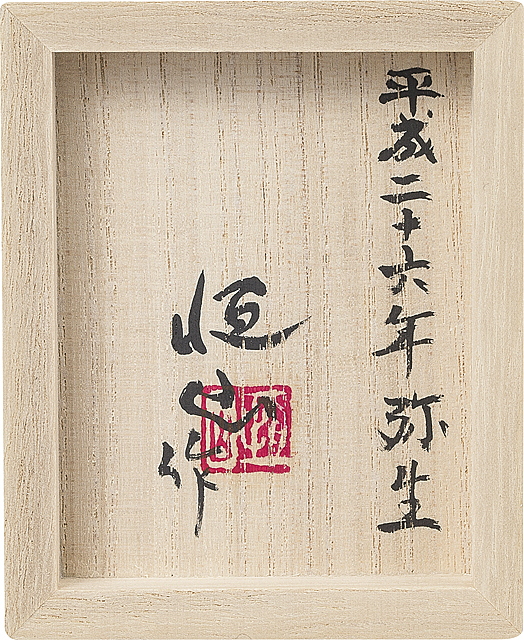 平成二十六年弥生
恒 作